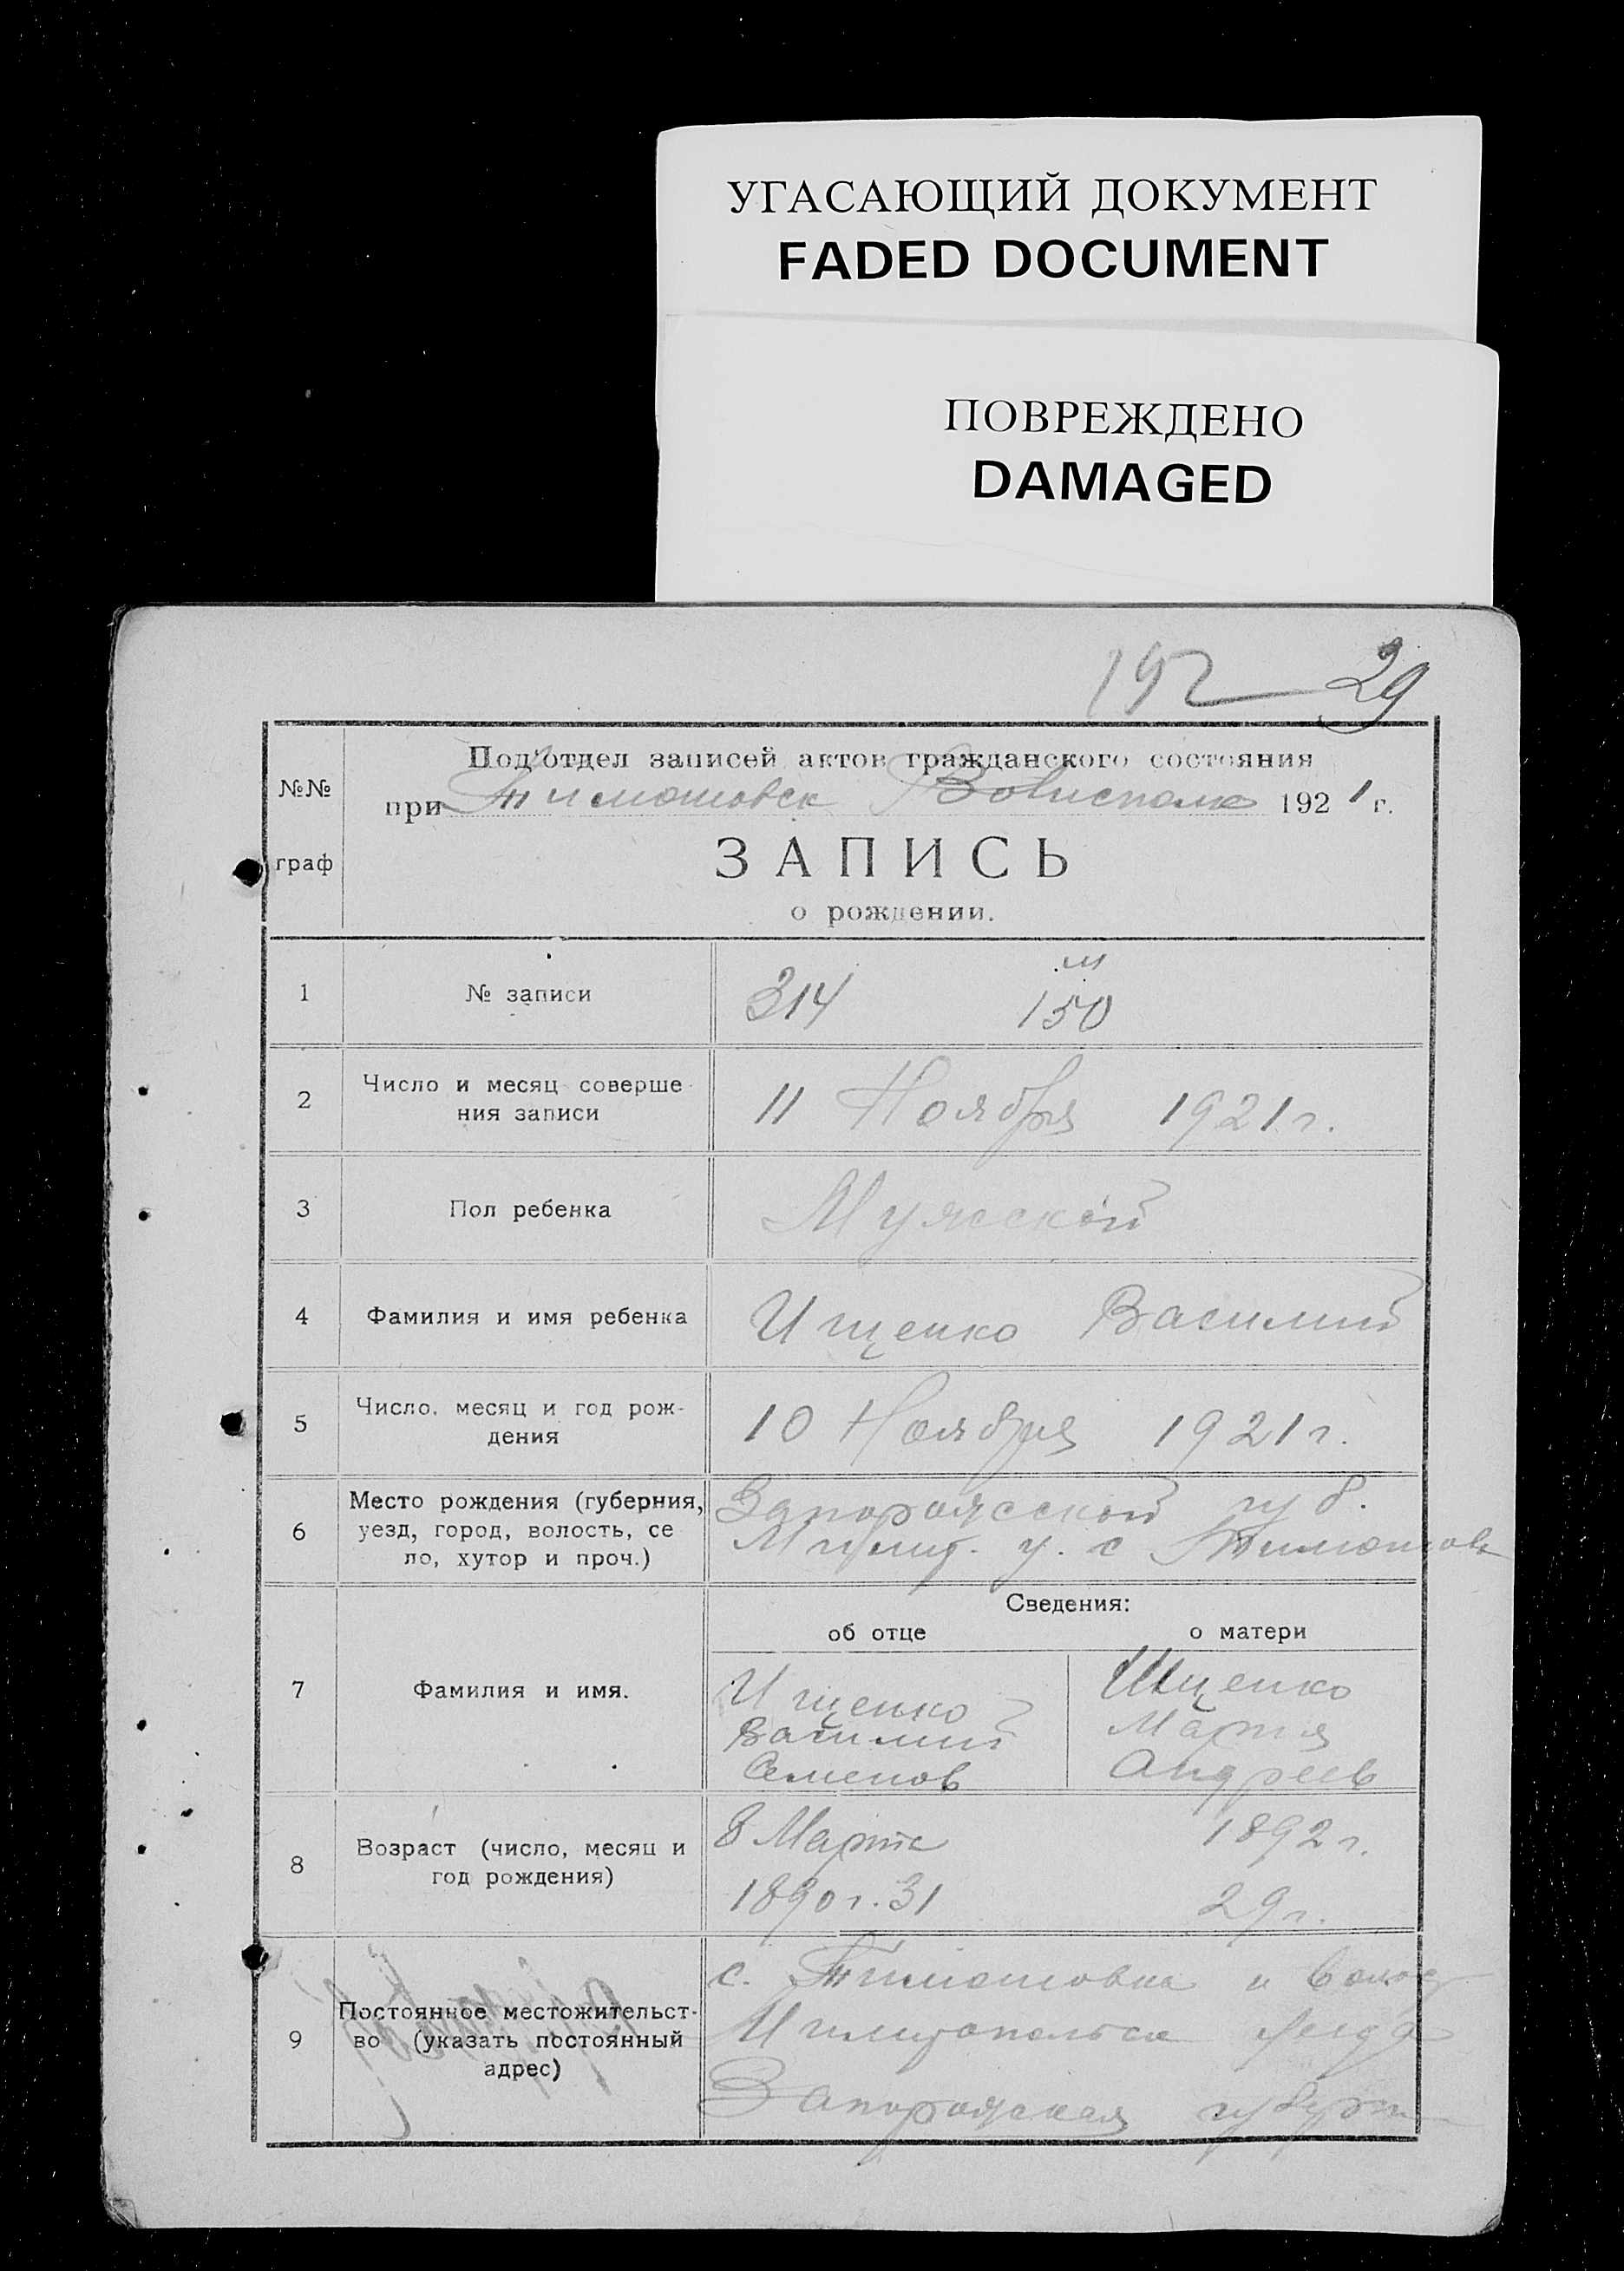 УГАСАЮЩИЙ ДОКУМЕНТ
FADED DOCUMENT
ПОВРЕЖДЕНО
DAMAGED
192 29
№№ граф
Под'отдел записей актов гражданского состояния
при Тимошовск Волисполк 1921 г.
ЗАПИСЬ
о рождении.
1 № записи 314 м 150
2 Число и месяц соверше-
ния записи
11 Ноября 1921 г.
3 Пол ребенка Мужской
4 Фамилия и имя ребенка Ищенко Василий
5 Число, месяц и год рож-
дения
10 Ноября 1921 г.
6 Место рождения (губерния,
уезд, город, волость, се
ло, хутор и проч.)
Запорожской губ.
у. с Тимошов
Сведения:
об отце о матери
7 Фамилия и имя.
Ищенко
Василий
Семенов
Ищенко
Мария
Андреев
8 Возраст (число, месяц и
год рождения)
8 Марта
1890 г. 31
1892 г.
29 г.
9 Постоянное местожительст-
во (указать постоянный
адрес)
с. Тимошовка и волос
уезда
Запорожская губерн